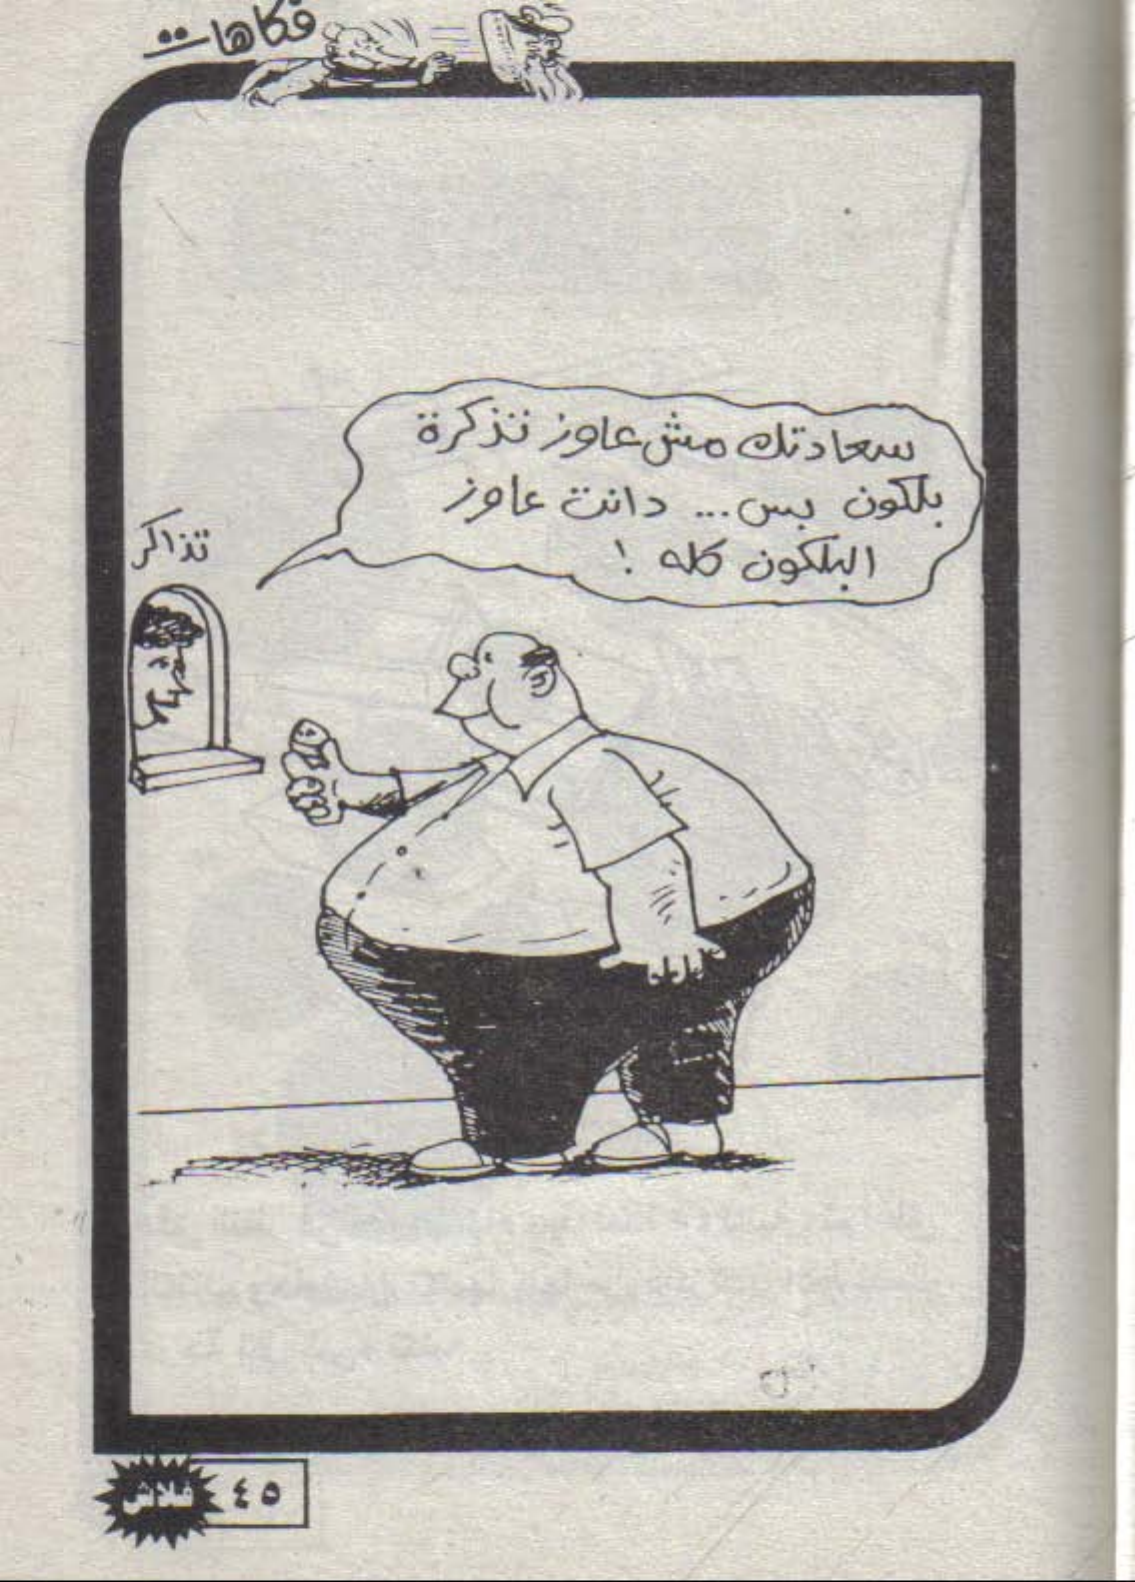 فكاهات
سعادتك مش عاوز تذكرة
بلكون بس... دانت عاوز
البلكون كله !
تذاكر
٤٥
فلاش